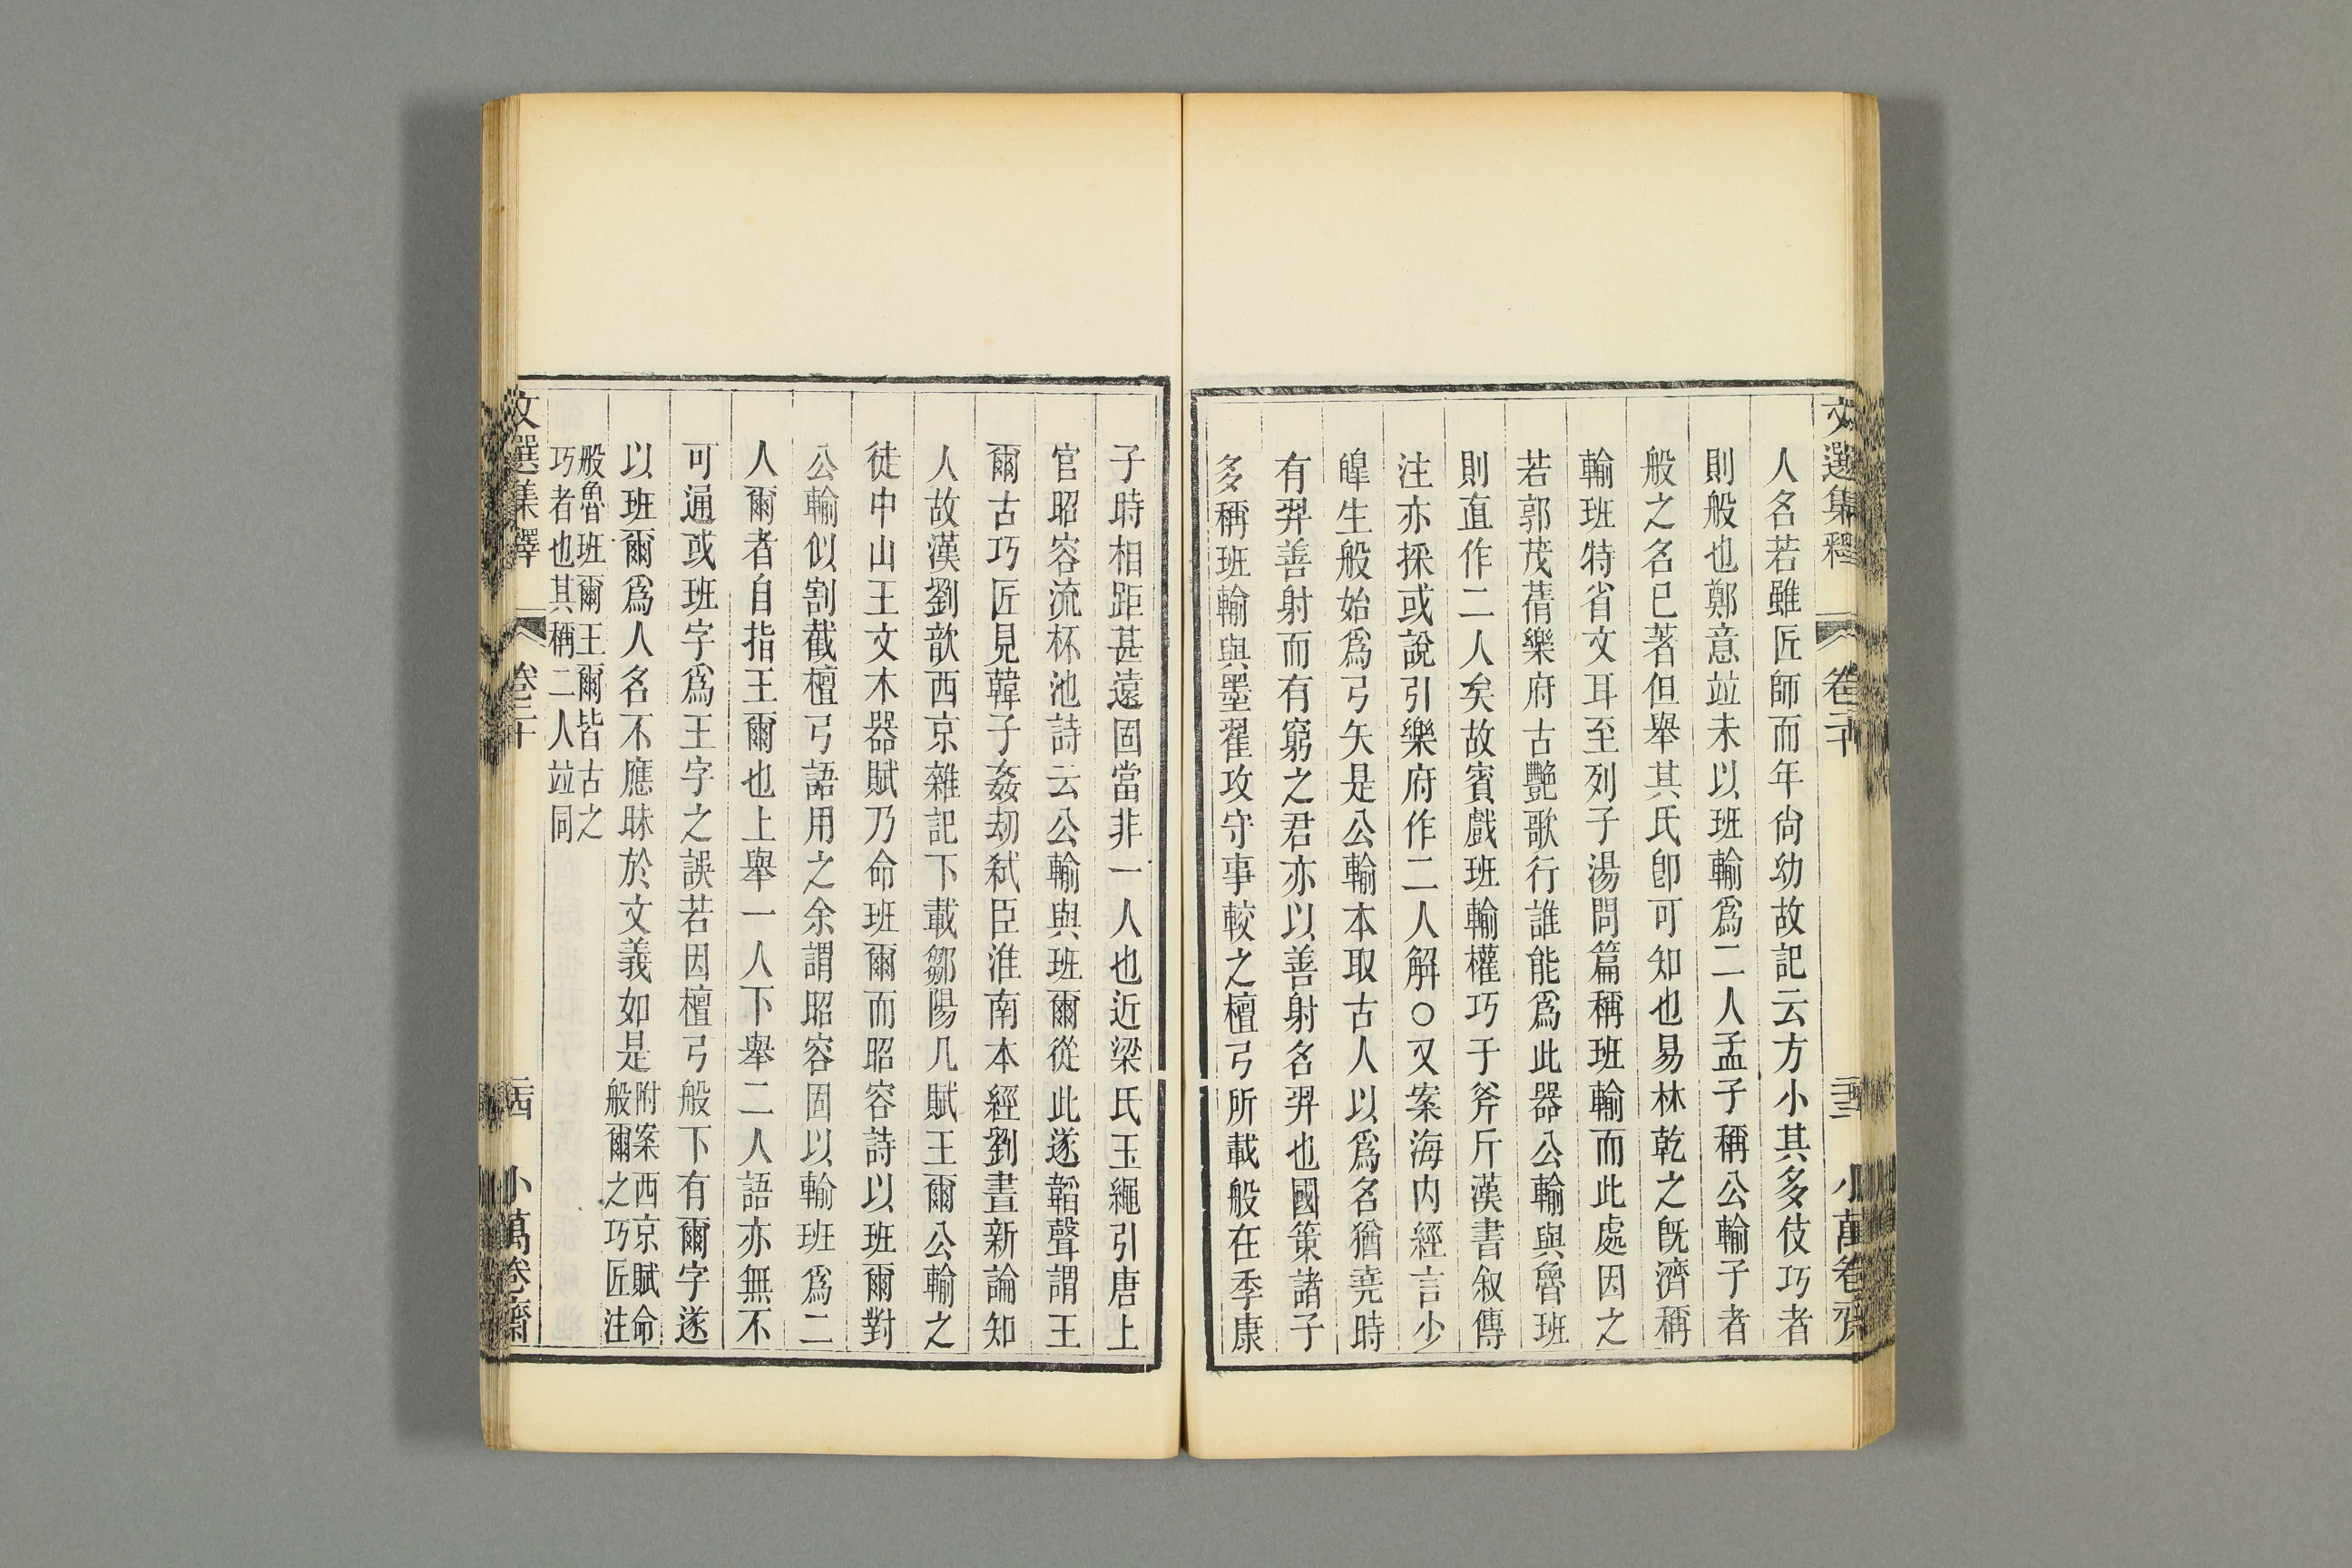 文選集釋 卷二十 二十三 小萬卷齋
人名若雖匠師而年尙幼故記云方小其多伎巧者
則般也鄭意竝未以班輸爲二人孟子稱公輸子者
般之名已著但舉其氏卽可知也易林乾之旣濟稱
輸班特省文耳至列子湯問篇稱班輸而此處因之
若郭茂蒨樂府古艷歌行誰能爲此器公輸與魯班
則直作二人矣故賓戲班輸權巧于斧斤漢書叙傳
注亦採或說引樂府作二人解○又案海內經言少
皥生般始爲弓矢是公輸本取古人以爲名猶堯時
有羿善射而有窮之君亦以善射名羿也國策諸子
多稱班輸與墨翟攻守事較之檀弓所載般在季康
子時相距甚遠固當非一人也近梁氏玉繩引唐上
官昭容流杯池詩云公輸與班爾從此遂韜聲謂王
爾古巧匠見韓子姦劫弒臣淮南本經劉晝新論知
人故漢劉歆西京雜記下載鄒陽几賦王爾公輸之
徒中山王文木器賦乃命班爾而昭容詩以班爾對
公輸似割截檀弓語用之余謂昭容固以輸班爲二
人爾者自指王爾也上舉一人下舉二人語亦無不
可通或班字爲王字之誤若因檀弓般下有爾字遂
以班爾爲人名不應昧於文義如是
附案西京賦命
般爾之巧匠注
般魯班爾王爾皆古之
巧者也其稱二人竝同
文選集釋 卷二十 二十四 小萬卷齋